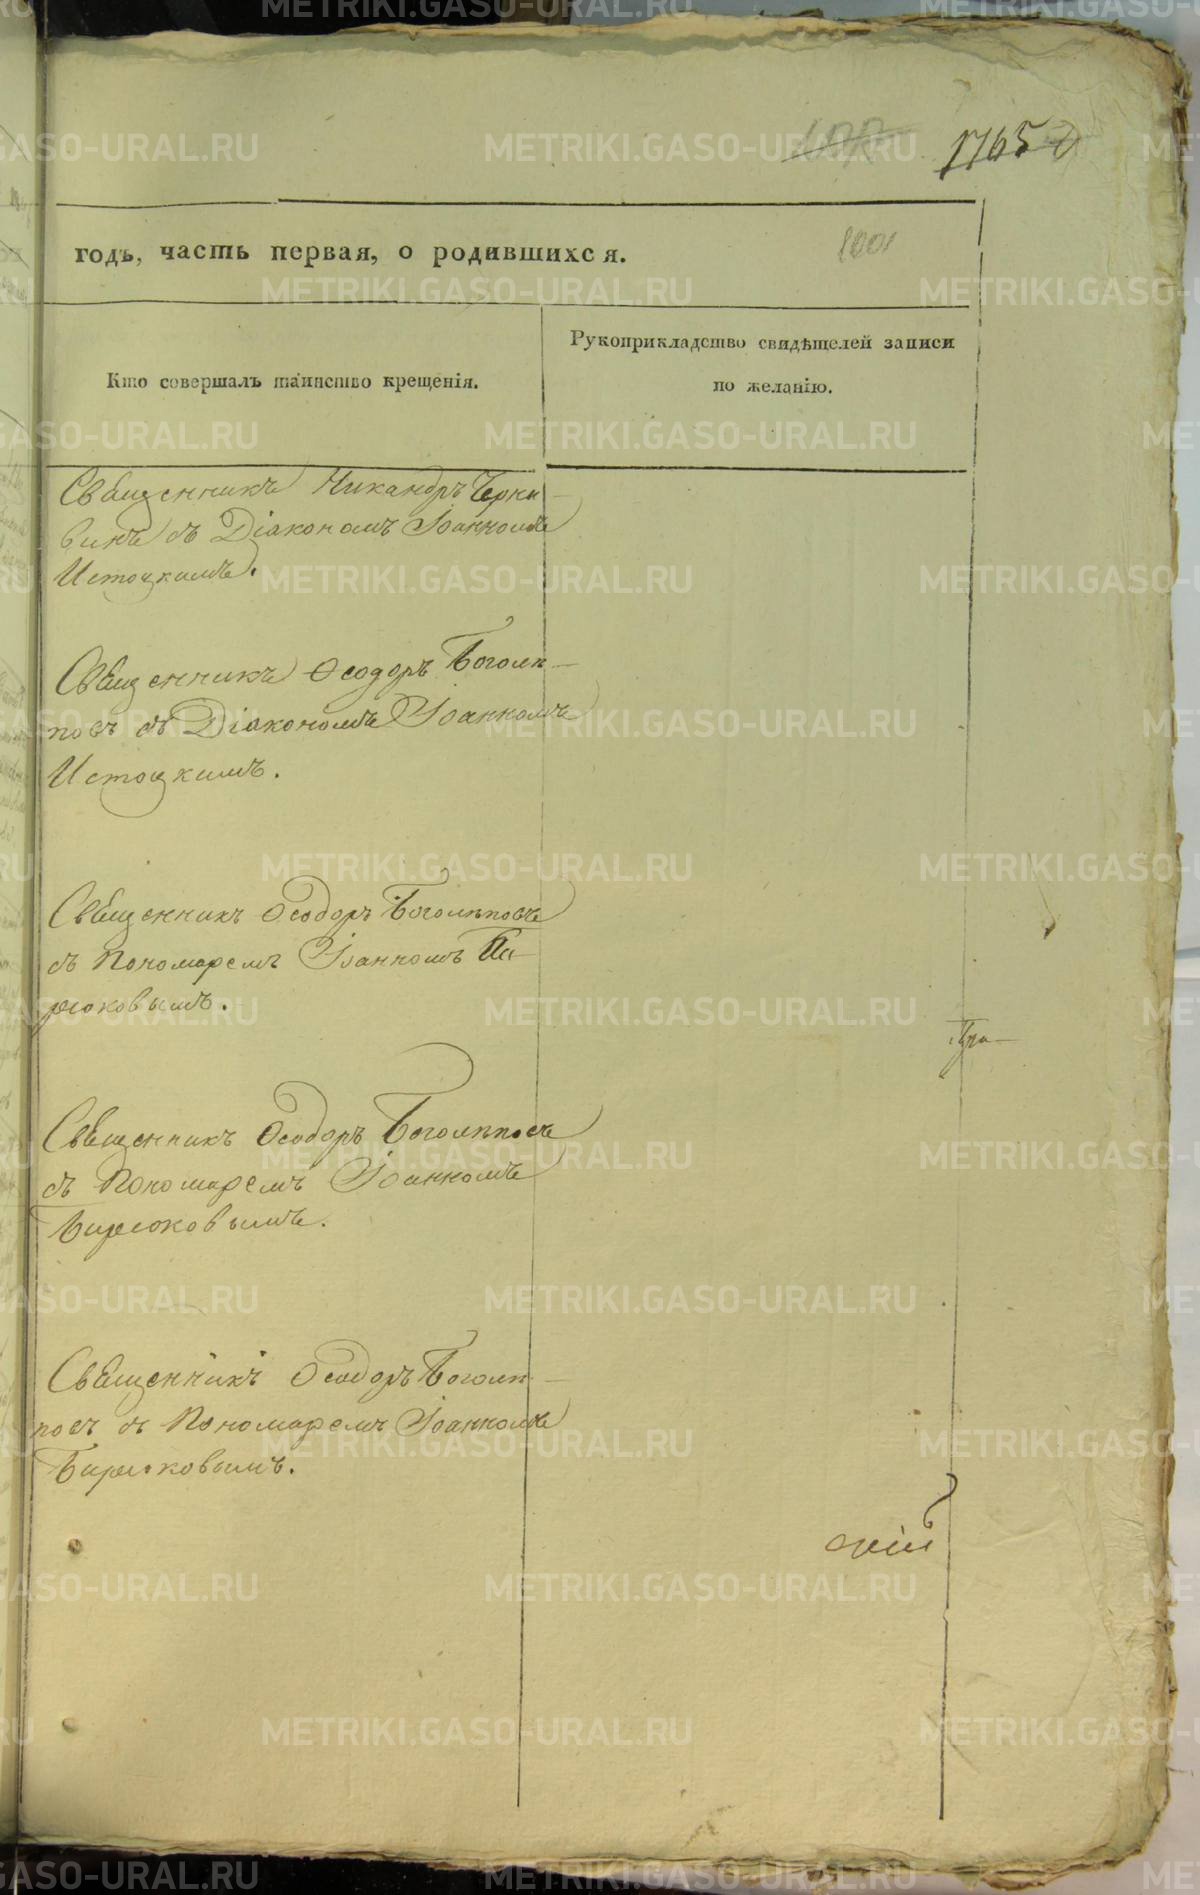 1765
годъ, часть первая, о родившихся.
1001
Кто совершалъ таинство крещенія.
Рукоприкладство свидѣтелей записи
по желанію.
Священникъ Никандръ Черни-
винъ съ Діакономъ Іоанномъ
Истоцкимъ.
Священникъ Ѳеодоръ Боголѣ-
повъ съ Діакономъ Іоанномъ
Истоцкимъ.
Священникъ Ѳеодоръ Боголѣповъ
съ Пономаремъ Іоанномъ Би-
рюковымъ.
Священникъ Ѳеодоръ Боголѣповъ
съ Пономаремъ Іоанномъ
Бирюковымъ.
Священникъ Ѳеодоръ Боголѣ-
повъ съ Пономаремъ Іоанномъ
Бирюковымъ.
METRIKI.GASO-URAL.RU